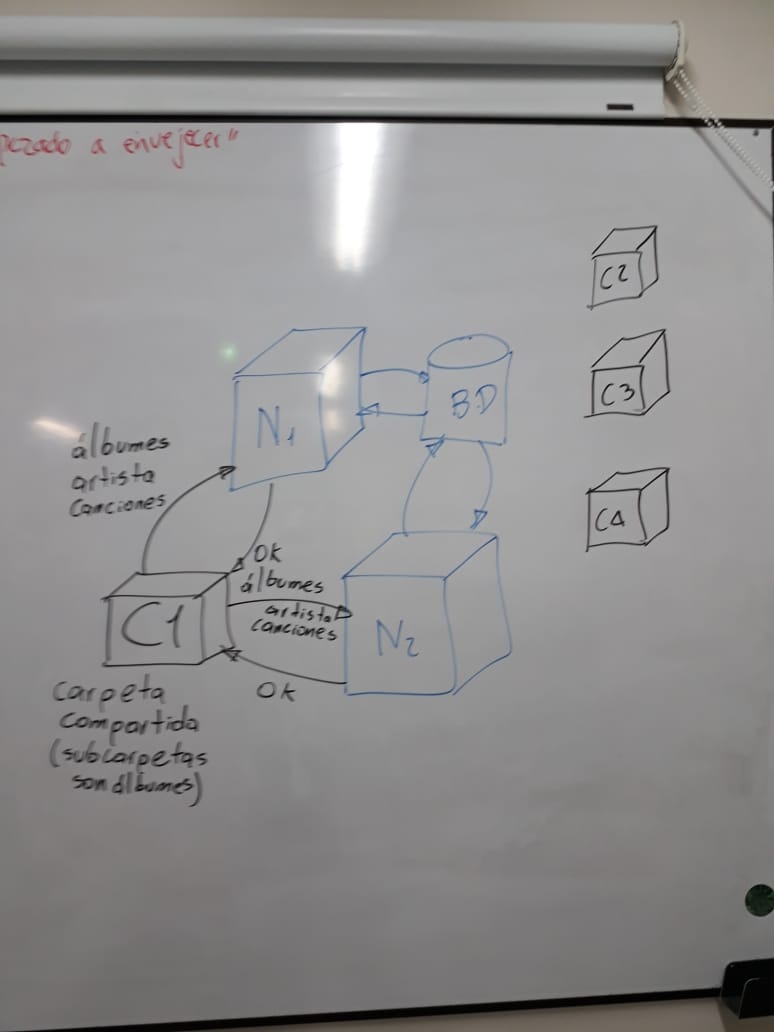 a envejecer"
C2
N1
BD
C3
álbumes
artista
canciones
C4
OK
álbumes
artista
canciones
C1
N2
OK
carpeta
compartida
(subcarpetas
son álbumes)